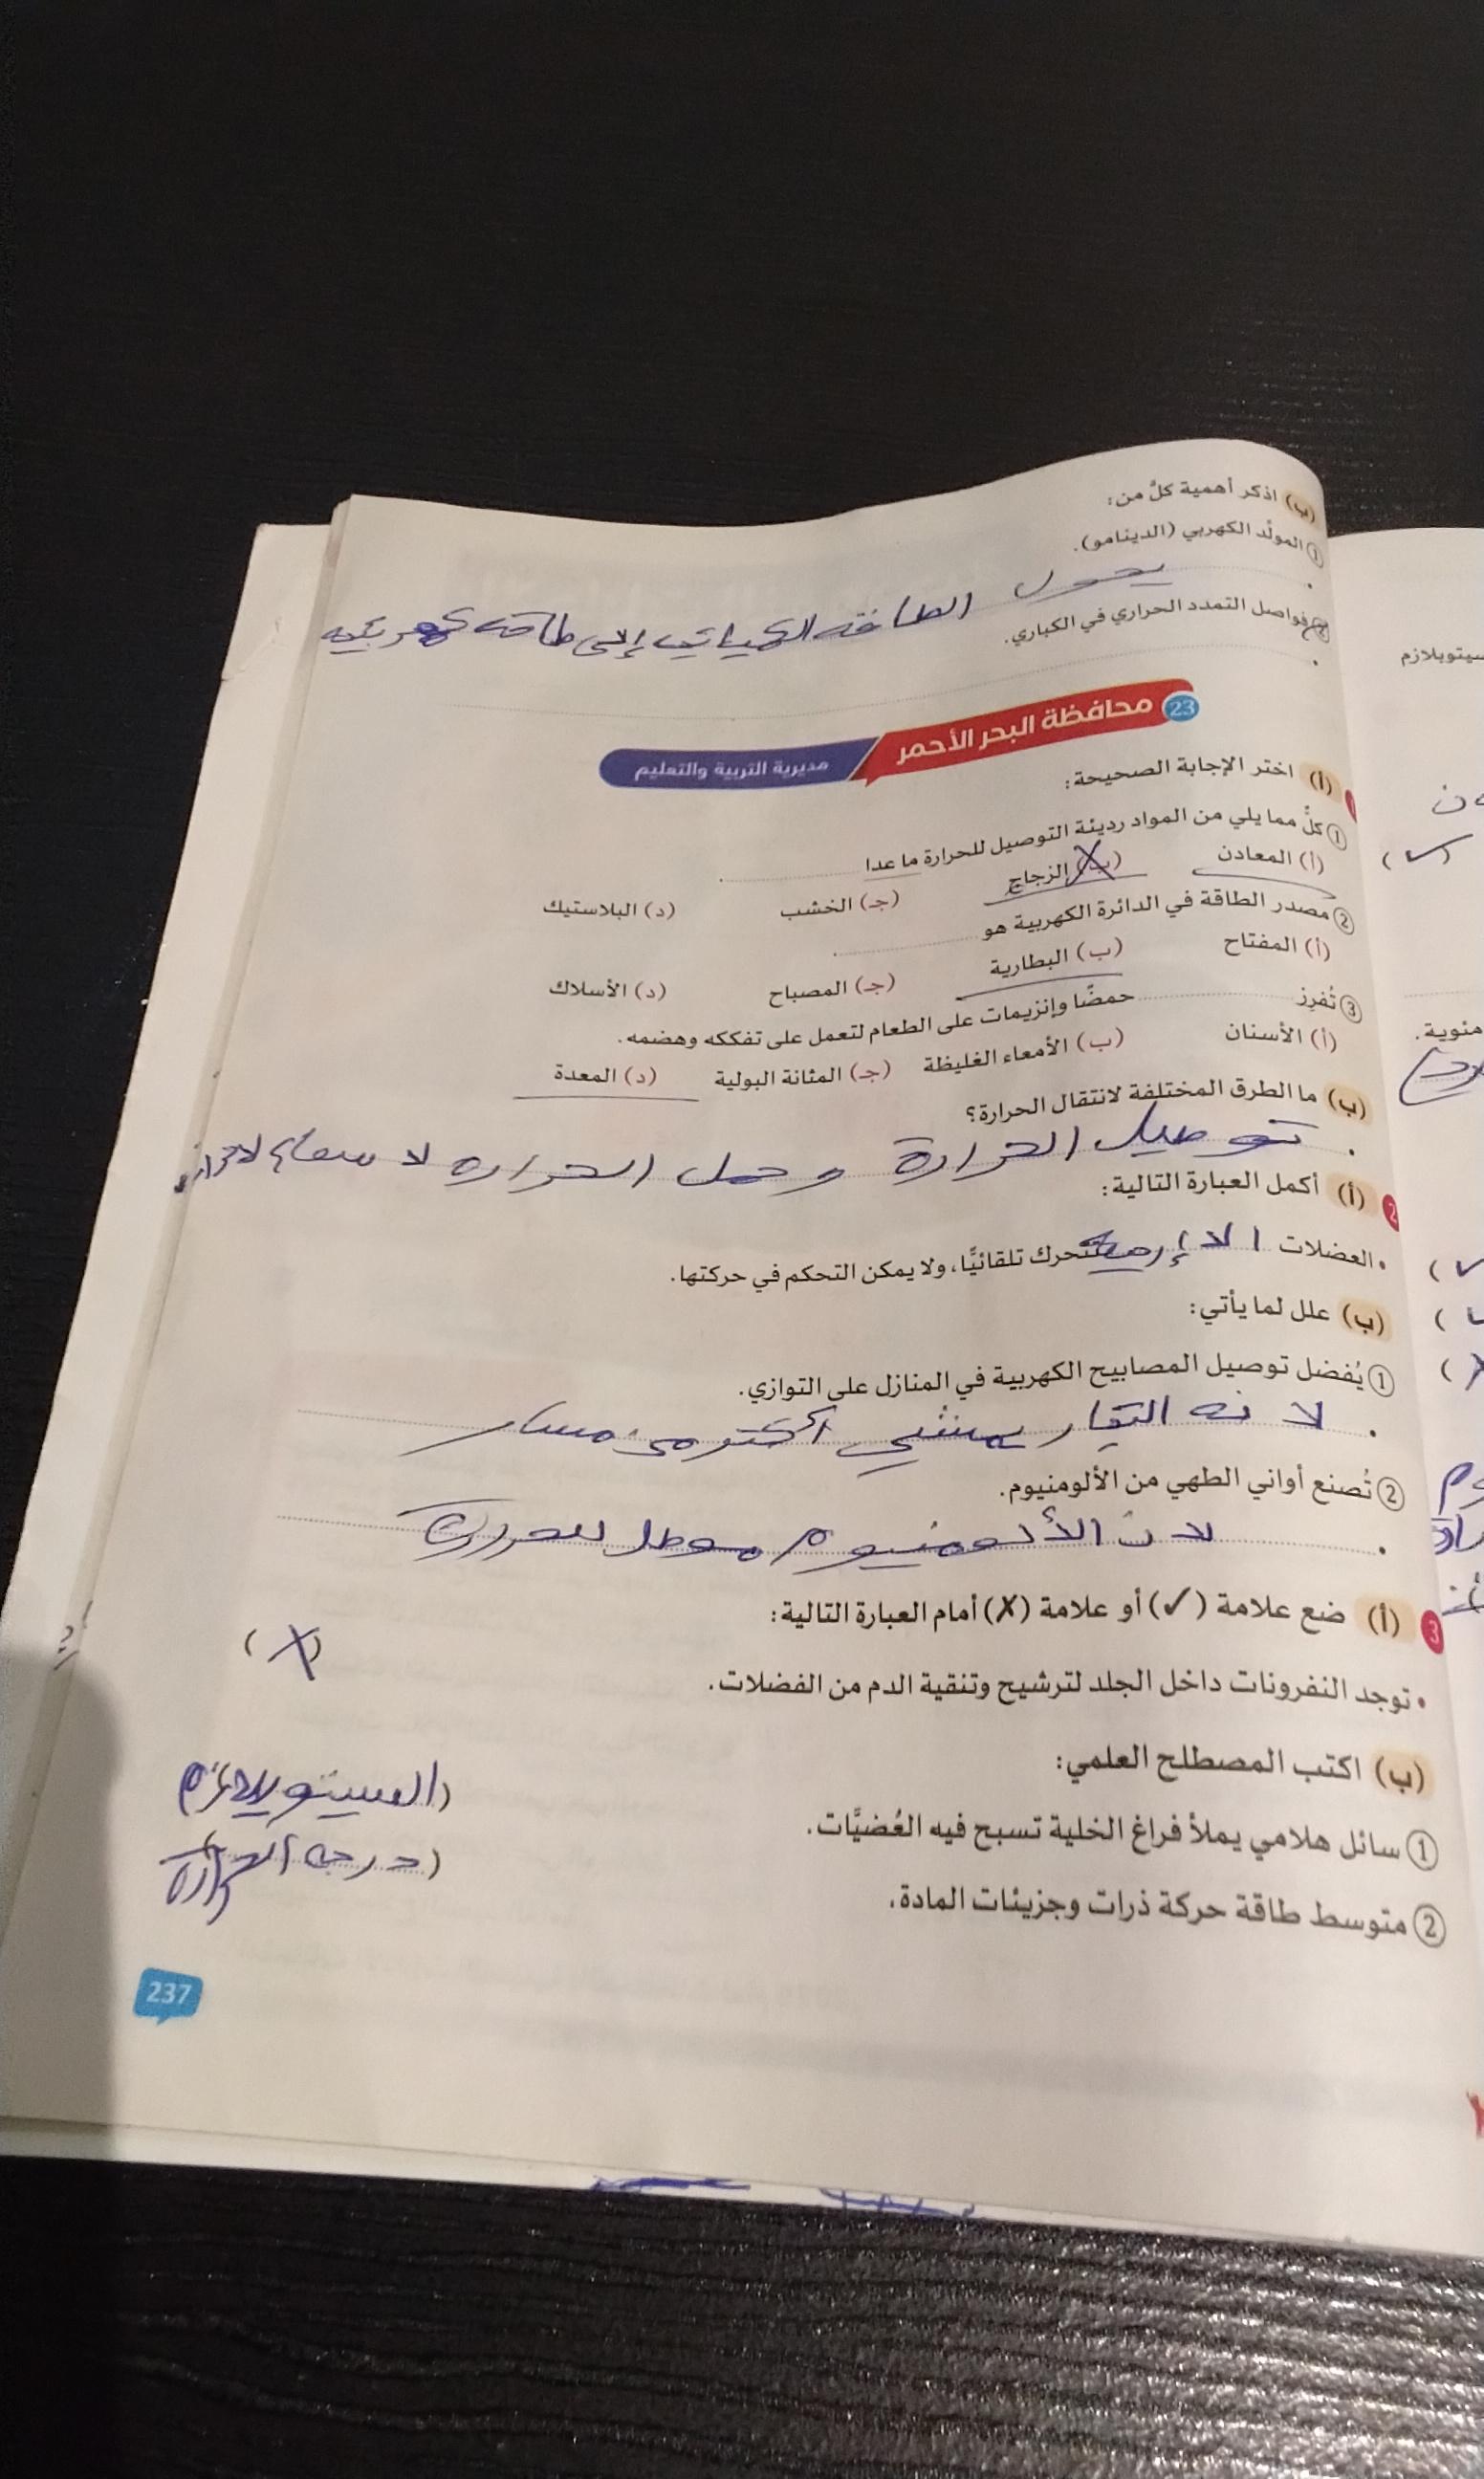 (ب) اذكر أهمية كلٍّ من:
① المولِّد الكهربي (الدينامو).
يحول الطاقه الكيميائيه إلى طاقه كهربيه
② فواصل التمدد الحراري في الكباري.
سيتوبلازم
23 محافظة البحر الأحمر
مديرية التربية والتعليم
1 (أ) اختر الإجابة الصحيحة:
① كلٌّ مما يلي من المواد رديئة التوصيل للحرارة ما عدا
(أ) المعادن (ب) الزجاج (جـ) الخشب (د) البلاستيك
(✓)
② مصدر الطاقة في الدائرة الكهربية هو
(أ) المفتاح (ب) البطارية (جـ) المصباح (د) الأسلاك
③ تُفرِز حمضًا وإنزيمات على الطعام لتعمل على تفككه وهضمه.
(أ) الأسنان (ب) الأمعاء الغليظة (جـ) المثانة البولية (د) المعدة
منوية.
(ب) ما الطرق المختلفة لانتقال الحرارة؟
توصيل الحرارة و حمل الحراره
2 (أ) أكمل العبارة التالية:
• العضلات تتحرك تلقائيًّا، ولا يمكن التحكم في حركتها.
(ب) علل لما يأتي:
① يُفضل توصيل المصابيح الكهربية في المنازل على التوازي.
لانه التيار يمشي اكتر من مسار
② تُصنع أواني الطهي من الألومنيوم.
لان الألومنيوم موصل للحرارة
3 (أ) ضع علامة (✓) أو علامة (✗) أمام العبارة التالية:
• توجد النفرونات داخل الجلد لترشيح وتنقية الدم من الفضلات. (X)
(ب) اكتب المصطلح العلمي:
① سائل هلامي يملأ فراغ الخلية تسبح فيه العُضيَّات. (السيتوبلازم
② متوسط طاقة حركة ذرات وجزيئات المادة. (درجه الحرارة
237